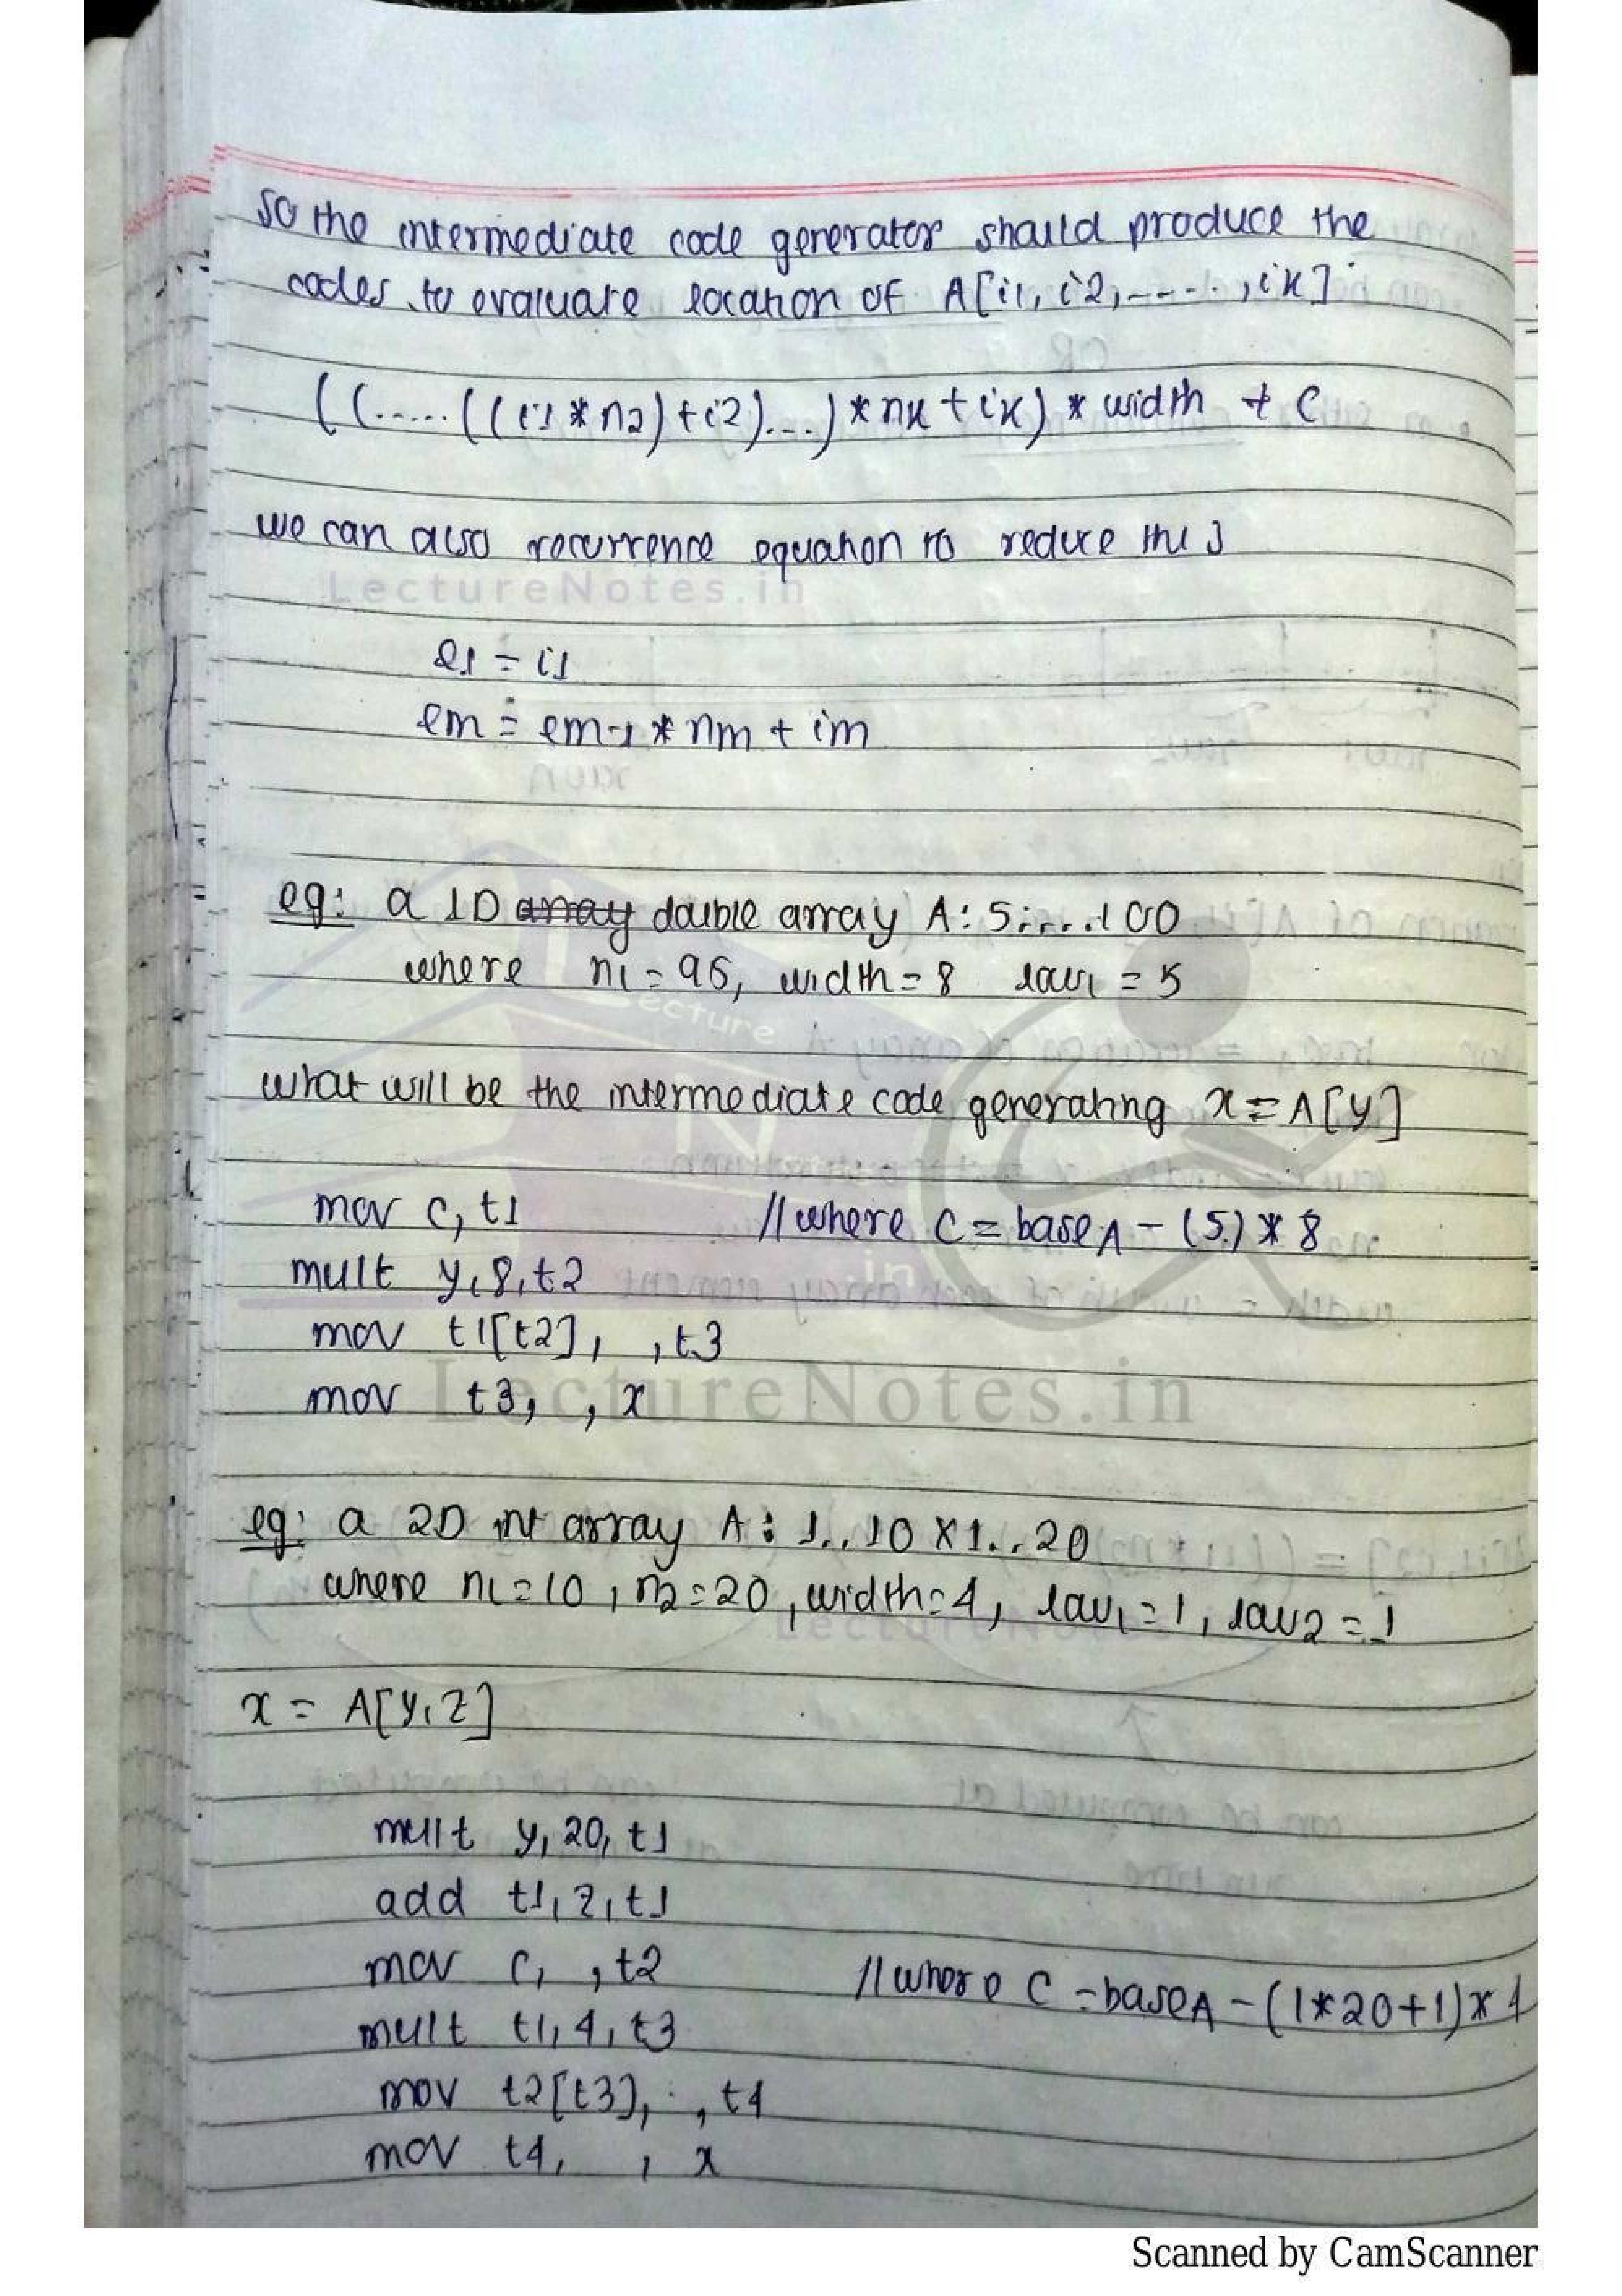 so the intermediate code generator should produce the
codes to evaluate location of A[i1, i2, ----., ik]
((.....((i1 * n2)+i2)...)*nk+ik) * width + C
we can also recurrence equation to reduce this
LectureNotes.in
e1 = i1
em = em-1 * nm + im
eg: a 1D array double array A: 5.....100
where n1 = 96, width = 8 low1 = 5
what will be the intermediate code generating x = A[y]
mov c, t1 // where C = baseA - (5) * 8
mult y, 8, t2
mov t1[t2], , t3
mov t3, , x
LectureNotes.in
eg: a 2D int array A: 1..10 X 1..20
where n1=10, n2=20, width=4, low1=1, low2=1
x = A[y,z]
mult y, 20, t1
add t1, z, t1
mov c, , t2 // where C = baseA - (1*20+1)*4
mult t1, 4, t3
mov t2[t3], , t4
mov t4, , x
Scanned by CamScanner